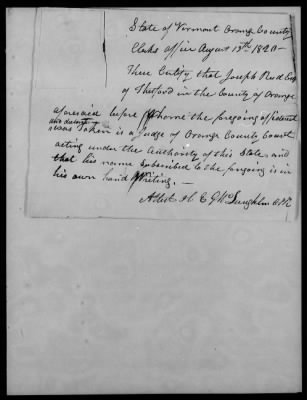 State of Vermont Orange County
Clerks office August 13th 1820 -
These Certify that Joseph Reed Esq
of Thetford in the County of Orange
aforesaid before Whome the foregoing affidavit
was taken is a Judge of Orange County Court
acting under the Authority of this State, and
that his name subscribed to the foregoing is in
his own hand Writing. -
Attest H E G McLaughlin Clk